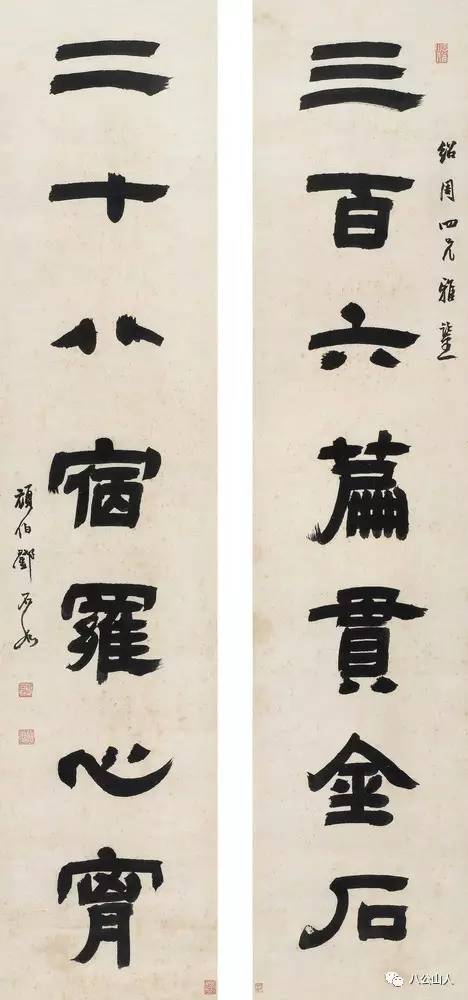 紹周四兄雅鑒
三百六篇貫金石
二十八宿羅心胷
頑伯鄧石如
八公山人